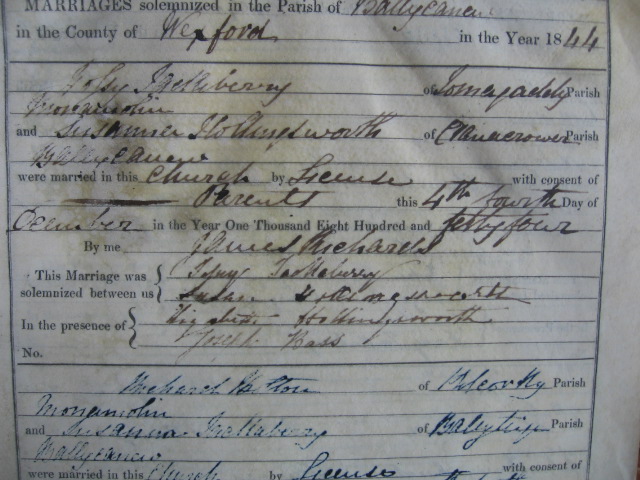 MARRIAGES solemnized in the Parish of Ballycanew
in the County of Wexford in the Year 1844
Tackaberry of Parish
Monamolin
and Susanna Hollingsworth of Parish
Ballycanew
were married in this Church by License with consent of
Parents this 4th Day of
December in the Year One Thousand Eight Hundred and
By me James Richards
This Marriage was Tackaberry
solemnized between us Susan Hollingsworth
In the presence of Hollingsworth
Joseph Bass
No.
Richard of Parish
Monamolin
and Susanna Tackaberry of Parish
Ballycanew
were married in this Church by License with consent of